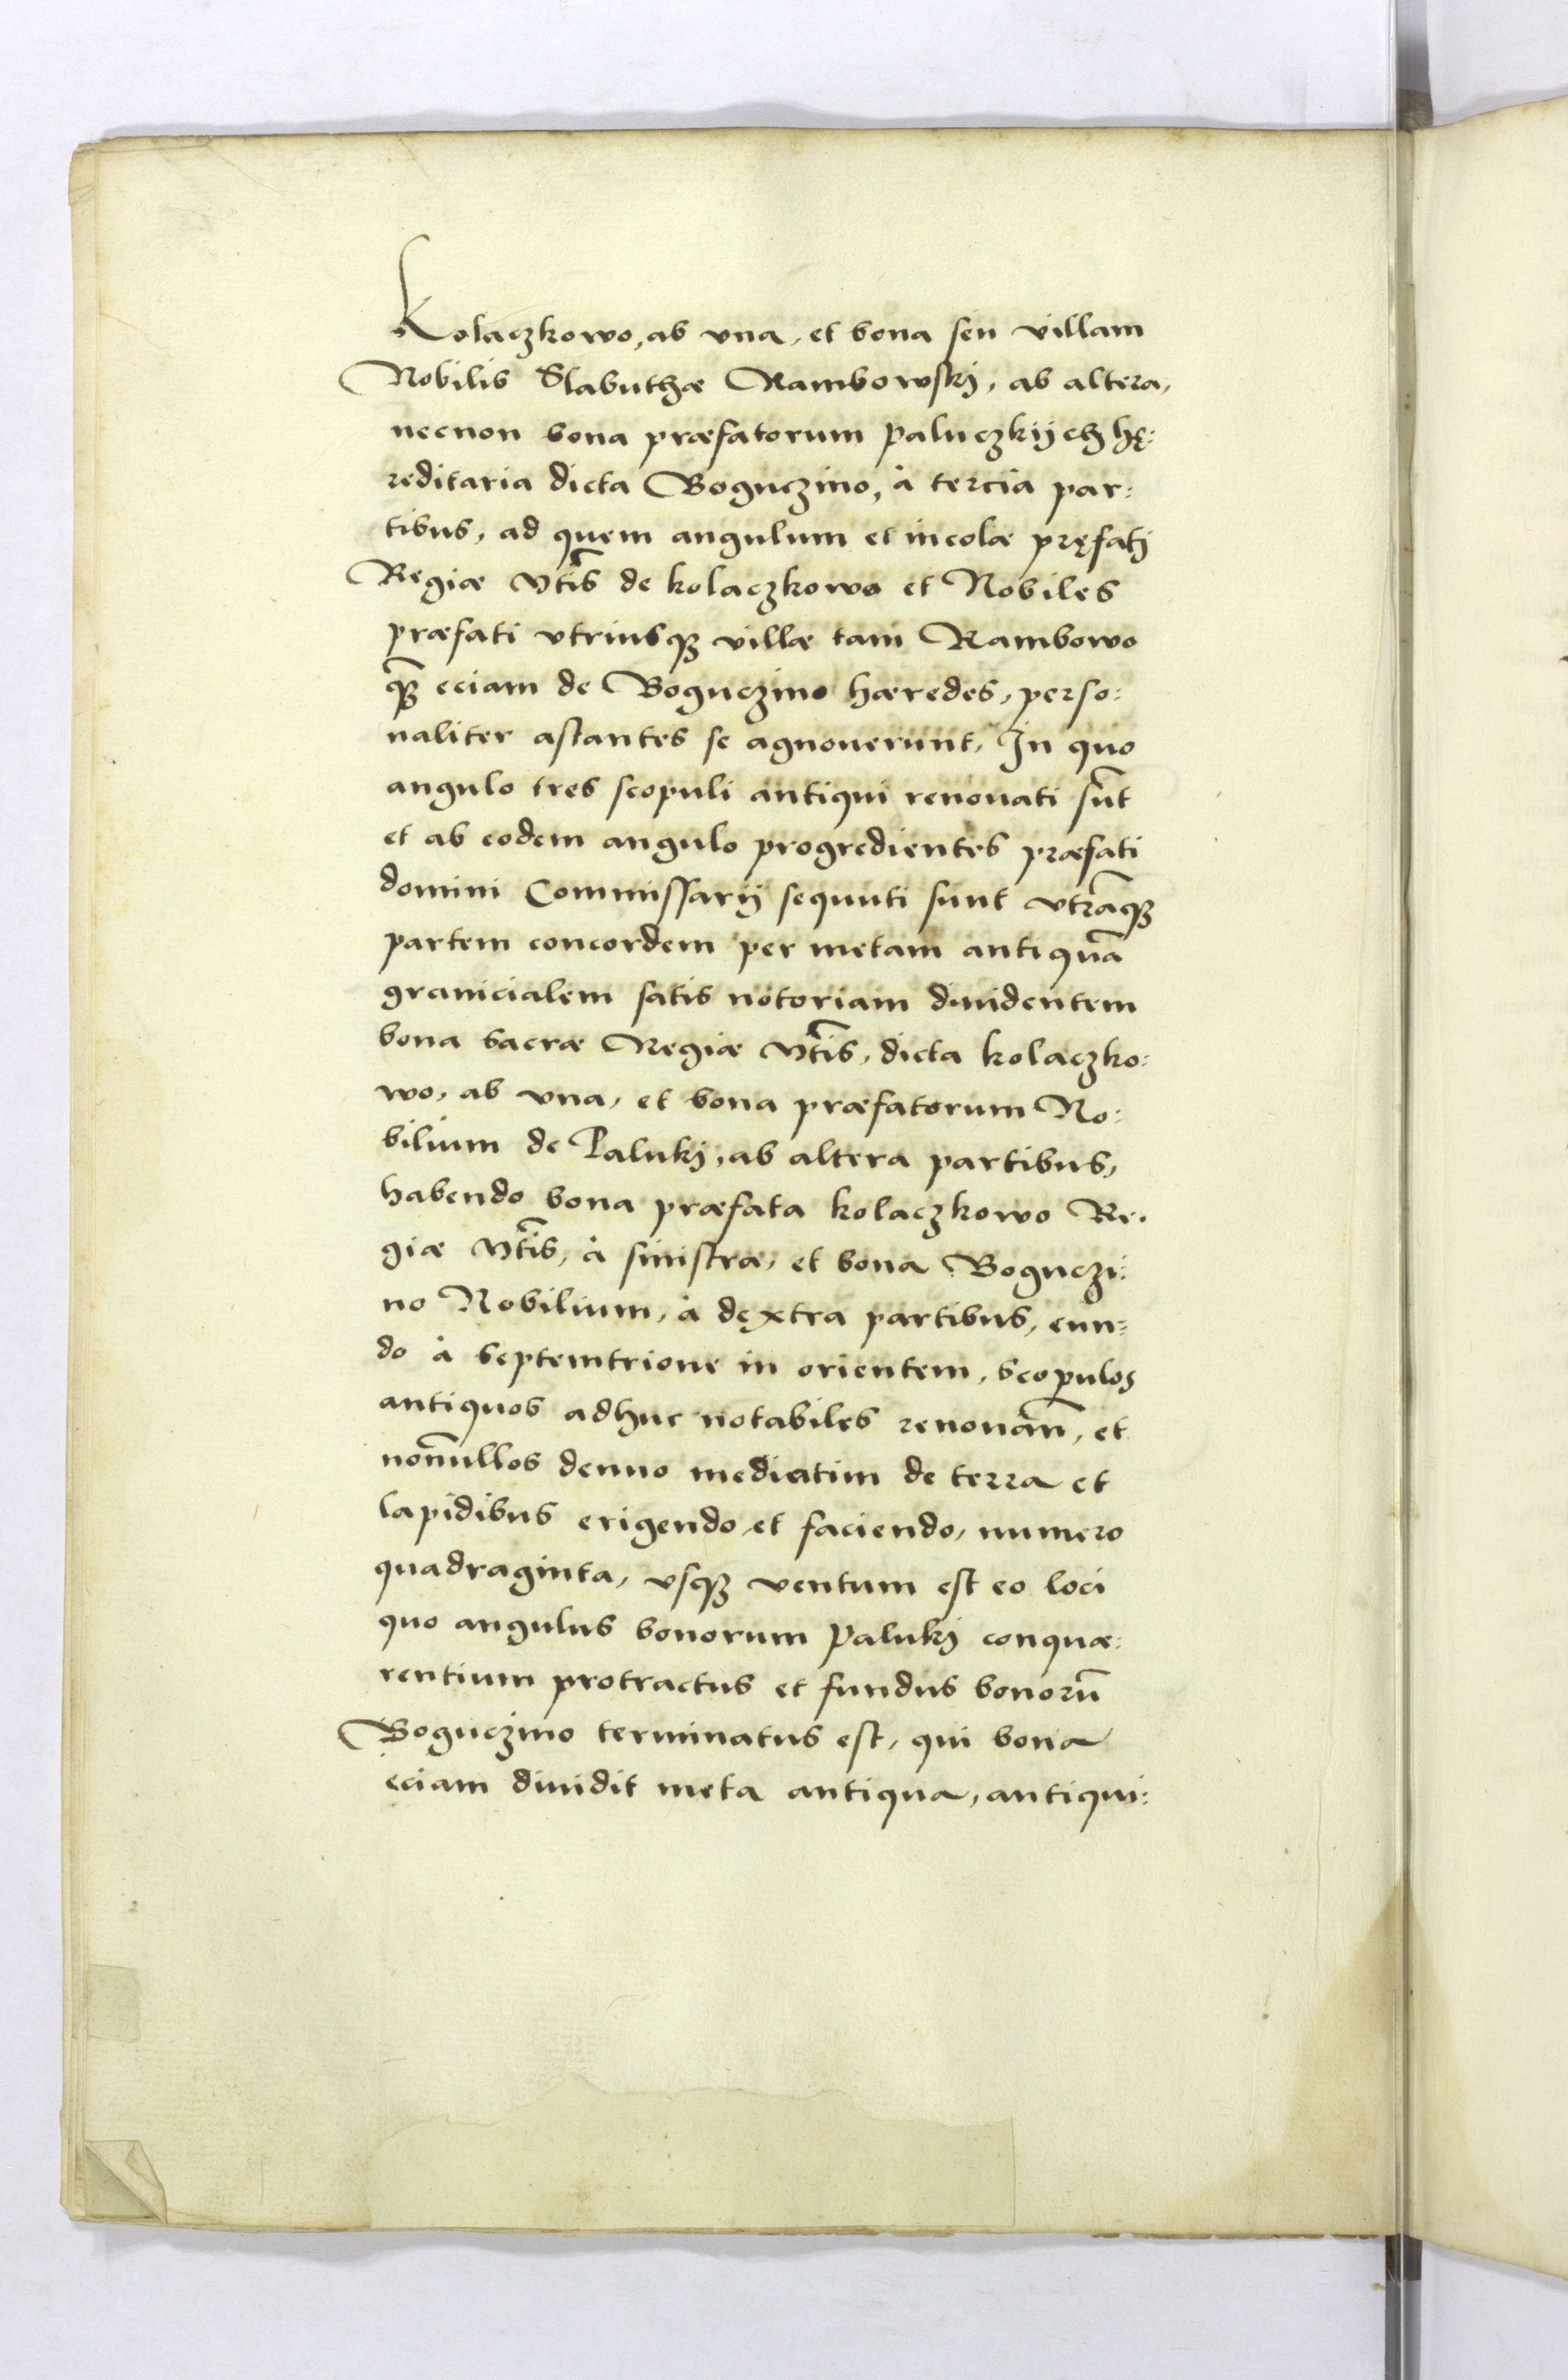 Kolaczkowo, ab vna, et bona seu villam
Nobilis Slabuthæ Rambowskj, ab altera,
necnon bona præfatorum Paluczkijch hę:
reditaria dicta Boguczino, à tercia par:
tibus, ad quem angulum et incolæ pręfatj
Regiæ Mtis de Kolaczkowo et Nobiles
præfati vtriusqȝ villæ tam Rambowo
qȝ̃ eciam de Boguczino hæredes, perso:
naliter astantes se agnouerunt, In quo
angulo tres scopuli antiqui renouati sũt
et ab eodem angulo progredientes præfati
domini Commissarij sequuti sunt vtrãqȝ
partem concordem per metam antiquã
granicialem satis notoriam diuidentem
bona sacræ Regiæ Mtis, dicta Kolaczko:
wo, ab vna, et bona præfatorum No:
bilium de Palukj, ab altera partibus,
habendo bona præfata Kolaczkowo Re:
giæ Mtis, à sinistra, et bona Boguczi:
no Nobilium, à dęxtra partibus, eun:
do à septemtrione in orientem, scopulos
antiquos adhuc notabiles renouañ, et
nonũllos denuo mediatim de terra et
lapidibus erigendo et faciendo, numero
quadraginta, vsqȝ ventum est eo loci
quo angulus bonorum Palukj conquæ:
rentium protractus et fundus bonorũ
Boguczino terminatus est, qui bona
eciam diuidit meta antiqua, antiqui: